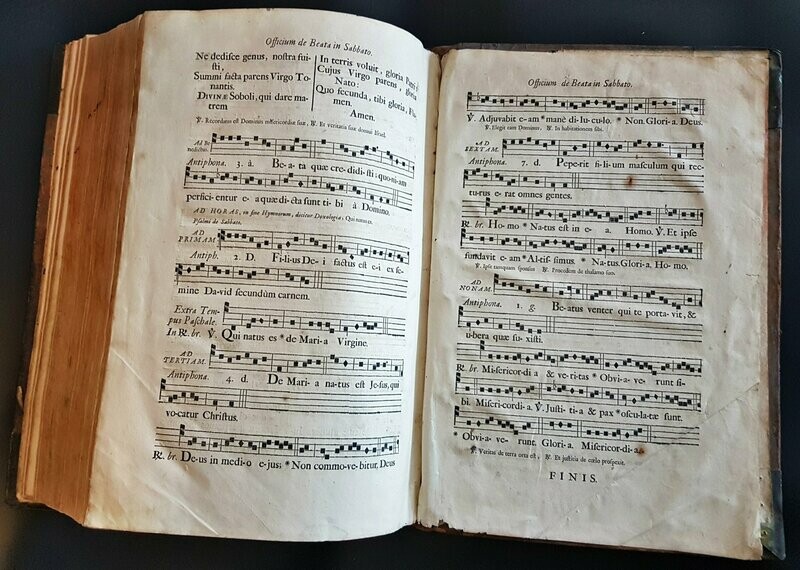 Officium de Beata in Sabbato.
Ne dedisce genus, nostra fui-
sti,
Summi facta parens Virgo To-
nantis.
DIVINÆ Soboli, qui dare ma-
trem
In terris voluit, gloria Patri &
Cujus Virgo parens, gloria
Nato:
Quo fecunda, tibi gloria, Fla-
men.
Amen.
℣. Recordatus est Dominus misericordiæ suæ, ℟. Et veritatis suæ domui Israel.
Ad Be
nedictus.
Antiphona. 3. à. Be-a-ta quæ cre-didi-sti: quo-ni-am
perfici-entur e-a quæ di-cta sunt ti-bi à Domino.
AD HORAS, in fine Hymnorum, dicitur Doxologia, Qui natus es.
Psalmi de Sabbato.
AD
PRIMAM
Antiph. 2. D. Fi-li-us De-i factus est e-i ex se-
mine Da-vid secundùm carnem.
Extra Tem-
pus Paschale.
In ℟. br. ℣. Qui natus es * de Mari-a Virgine.
AD
TERTIAM.
Antiphona. 4. d. De Mari-a na-tus est Je-sus, qui
vo-catur Christus.
℟. br. De-us in medi-o e-jus; * Non commo-ve-bitur, Deus
Officium de Beata in Sabbato.
℣. Adjuvabit e-am * manè di-lu-cu-lo. * Non. Glori-a. Deus.
℣. Elegit eam Dominus. ℟. In habitationem sibi.
AD
SEXTAM.
Antiphona. 7. d. Pepe-rit fi-li-um masculum qui rec-
turus e-rat omnes gentes.
℟. br. Ho-mo * Natus est in e-a. Homo. ℣. Et ipse
fundavit e-am * Al-tis simus. * Na-tus. Glori-a. Ho-mo.
℣. Ipse tanquam sponsus ℟. Procedens de thalamo suo.
AD
NONAM.
Antiphona. 1. g. Be-atus venter qui te porta-vit, &
u-bera quæ su-xisti.
℟. br. Misericor-di-a & ve-ri-tas * Obvi-a-ve-runt si-
bi. Miseri-cordi-a. ℣. Justi-ti-a & pax * oscu-la-tæ sunt.
* Obvi-a-ve-runt. Glori-a. Misericor-di-a.
℣. Veritas de terra orta est, ℟. Et justicia de cœlo prospexit.
FINIS.